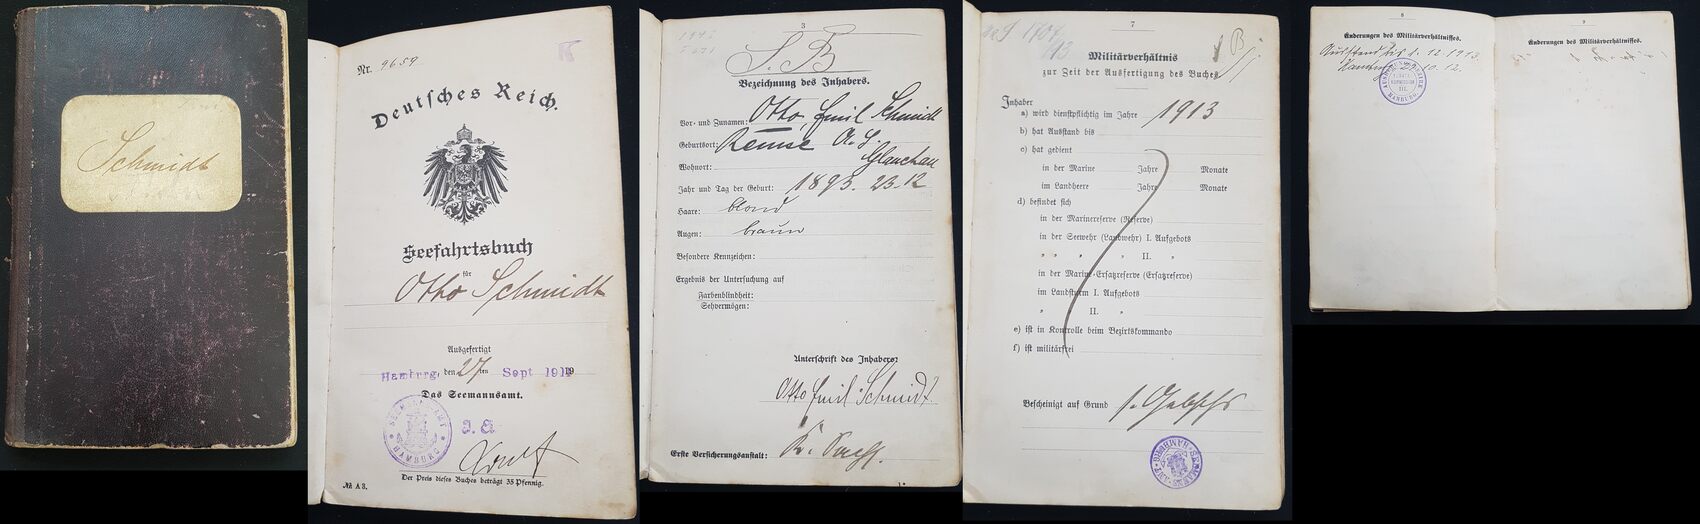 Schmidt
Nr. 9659
Deutsches Reich.
Seefahrtsbuch
für
Otto Schmidt
Ausgefertigt
Hamburg, den 27ten Sept 1911 19
Das Seemannsamt.
SEEMANNSAMT HAMBURG
a.a.
Der Preis dieses Buches beträgt 35 Pfennig.
№ A 3.
3
S. B
Bezeichnung des Inhabers.
Vor- und Zunamen: Otto, Emil Schmidt
Geburtsort: Remse A. H.
Wohnort: Glauchau
Jahr und Tag der Geburt: 1893. 23.12
Haare: blond
Augen: braun
Besondere Kennzeichen:
Ergebnis der Untersuchung auf
Farbenblindheit:
Sehvermögen:
Unterschrift des Inhabers:
Otto Emil Schmidt
Erste Versicherungsanstalt: K. Sachs.
7
Militärverhältnis
zur Zeit der Ausfertigung des Buches
Inhaber
a) wird dienstpflichtig im Jahre 1913
b) hat Ausstand bis
c) hat gedient
in der Marine Jahre Monate
im Landheere Jahre Monate
d) befindet sich
in der Marinereserve (Reserve)
in der Seewehr (Landwehr) I. Aufgebots
" " " " II. "
in der Marine-Ersatzreserve (Ersatzreserve)
im Landsturm I. Aufgebots
" II. "
e) ist in Kontrolle beim Bezirkskommando
f) ist militärfrei
Bescheinigt auf Grund
SEEMANNS-AMT HAMBURG
8
Änderungen des Militärverhältnisses.
Ausstand bis 1. 12. 1913.
Hamburg 29.10.12.
HAMBURG
III.
9
Änderungen des Militärverhältnisses.